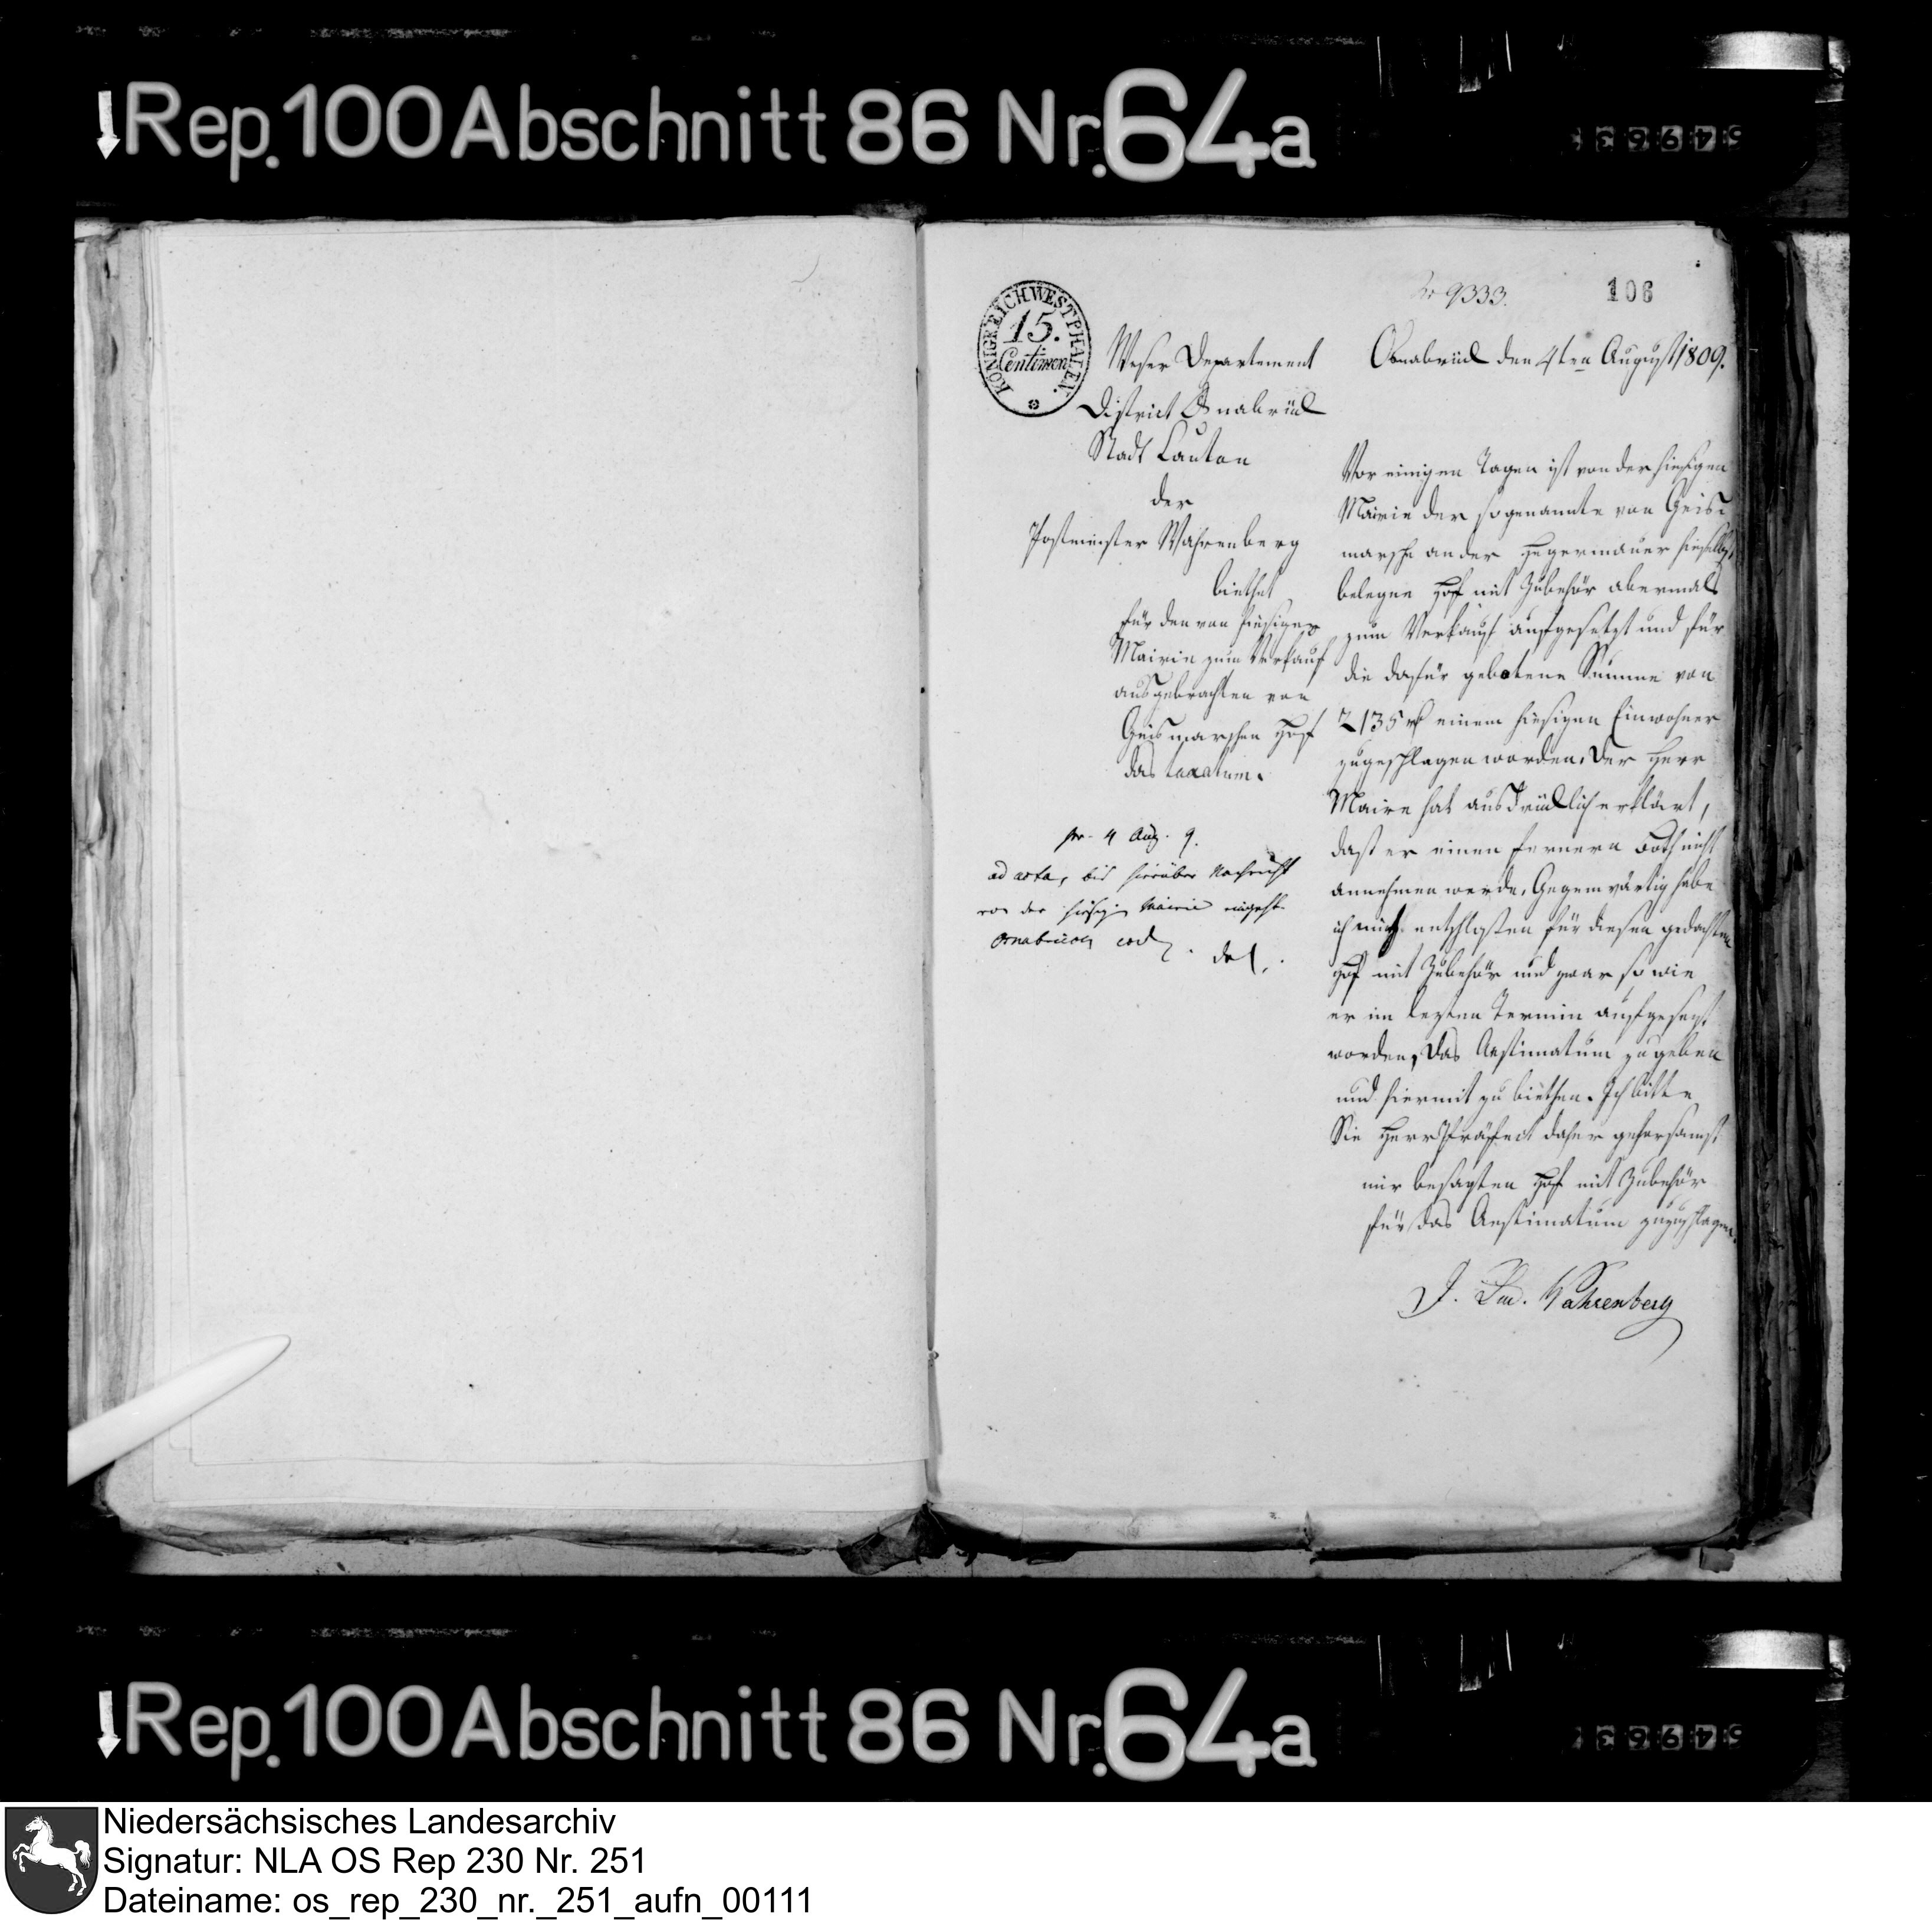 Rep. 100 Abschnitt 86 Nr. 64a
106
9333.
KÖNIGREICH WESTPHALEN.
15.
Centimen
Weser Departement
District Osnabrück
Stadt Canton
der
Postmeister Wahrenberg
biethet
für den von hiesiger
Mairie zum Verkauf
ausgebrachten von
Geismarschen Hof
das taxatum.
pr. 4 Aug. 9.
ad acta, bis hierüber Nachricht
von der hiesigen Mairie eingeht.
Osnabrück eod.
Osnabrück den 4ten August 1809.
Vor einigen Tagen ist von der hiesigen
Mairie der sogenannte von Geis
marsche an der Hegermauer hieselbst
belegene Hof mit Zubehör abermals
zum Verkauf aufgesetzt und für
die dafür gebotene Summe von
2135 rt einem hiesigen Einwohner
zugeschlagen worden. Der Herr
Maire hat ausdrücklich erklärt,
dasz er einen fernern Both nicht
annehmen werde. Gegenwärtig habe
ich mich entschlossen für diesen gedachten
Hof mit Zubehör und zwar so wie
er im lezten Termin aufgesezt
worden, das Aestimatum zu geben
und hiermit zu biethen. Ich bitte
Sie Herr Präfect daher gehorsamst
mir besagten Hof mit Zubehör
für das Aestimatum zuzuschlagen.
J. Wahrenberg
Rep. 100 Abschnitt 86 Nr. 64a
Niedersächsisches Landesarchiv
Signatur: NLA OS Rep 230 Nr. 251
Dateiname: os_rep_230_nr._251_aufn_00111